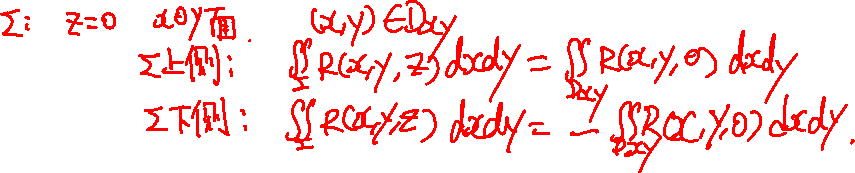 Σ: z=0 xoy面. (x,y)∈Dxy
Σ上侧: ∬Σ R(x,y,z)dxdy = ∬Dxy R(x,y,0) dxdy
Σ下侧: ∬Σ R(x,y,z) dxdy = - ∬Dxy R(x,y,0) dxdy.